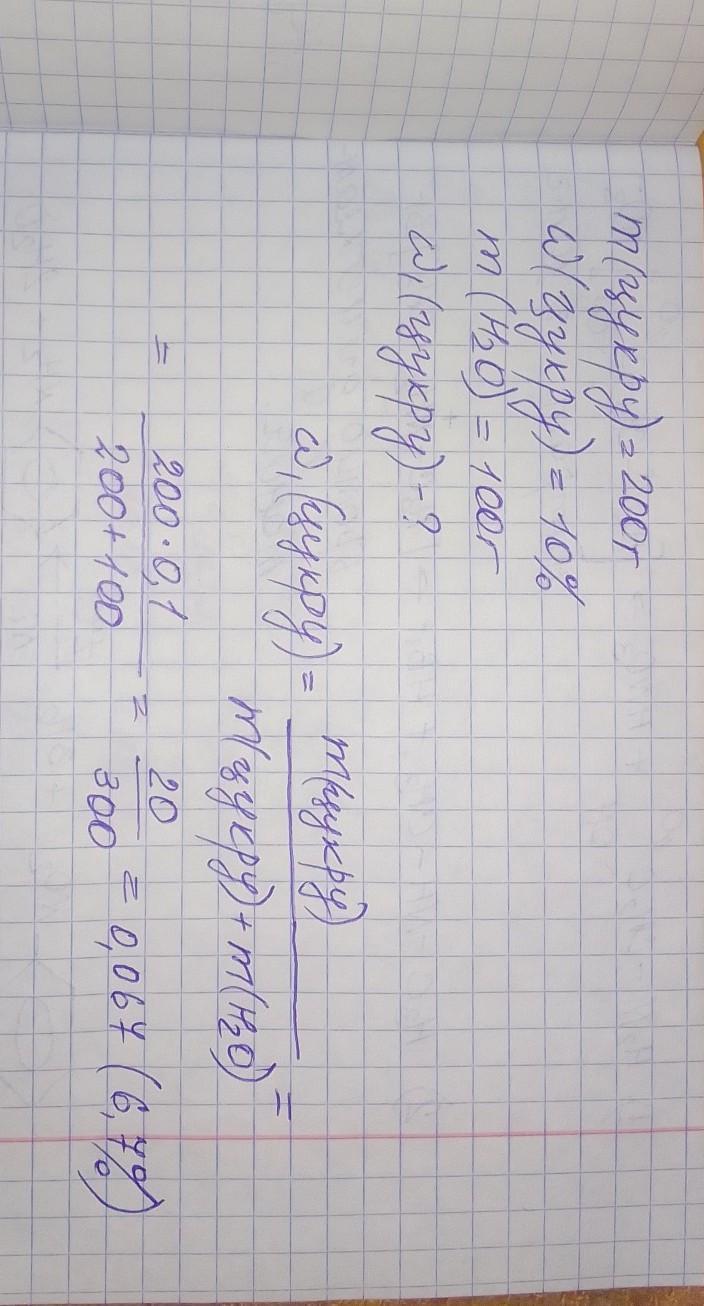 m(цукру) = 200г
ω(цукру) = 10%
m(H₂O) = 100г
ω₁(цукру) - ?
ω₁(цукру) = m(цукру) / m(цукру) + m(H₂O) =
= 200 · 0,1 / 200 + 100 = 20 / 300 = 0,067 (6,7%)